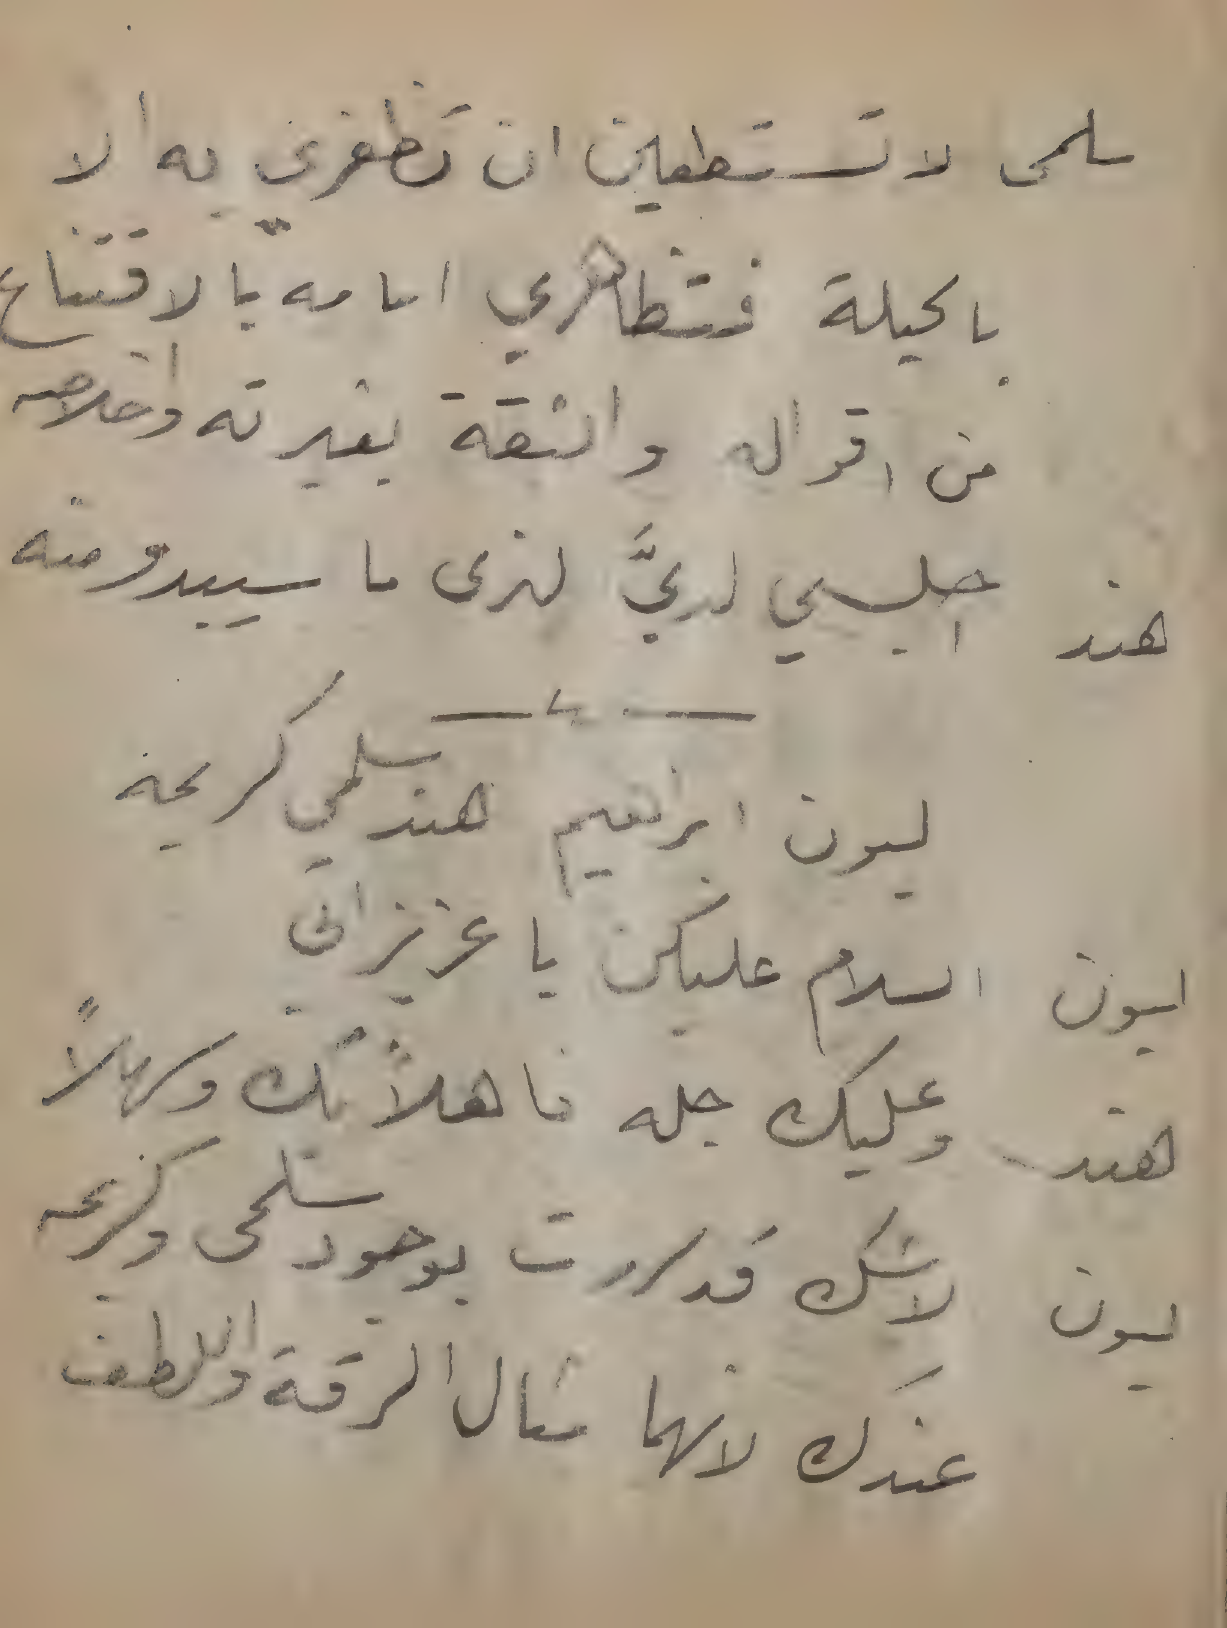 سلمى لا تستطعين ان تظفري به الا
بالحيلة فتظاهري امامه بالاقتناع
من اقواله والثقة بغيرته واخلاصه
هند اجلسي لديَّ لنرى ما سيبدو منه
ليون ابراهيم هند سلمى كريمة
ليون السلام عليكن يا عزيزاتي
هند وعليك جله فاهلاً بك وسهلاً
ليون لاشك قد سررت بوجود سلمى وكريمه
عندك لانهما مثال الرقة واللطف